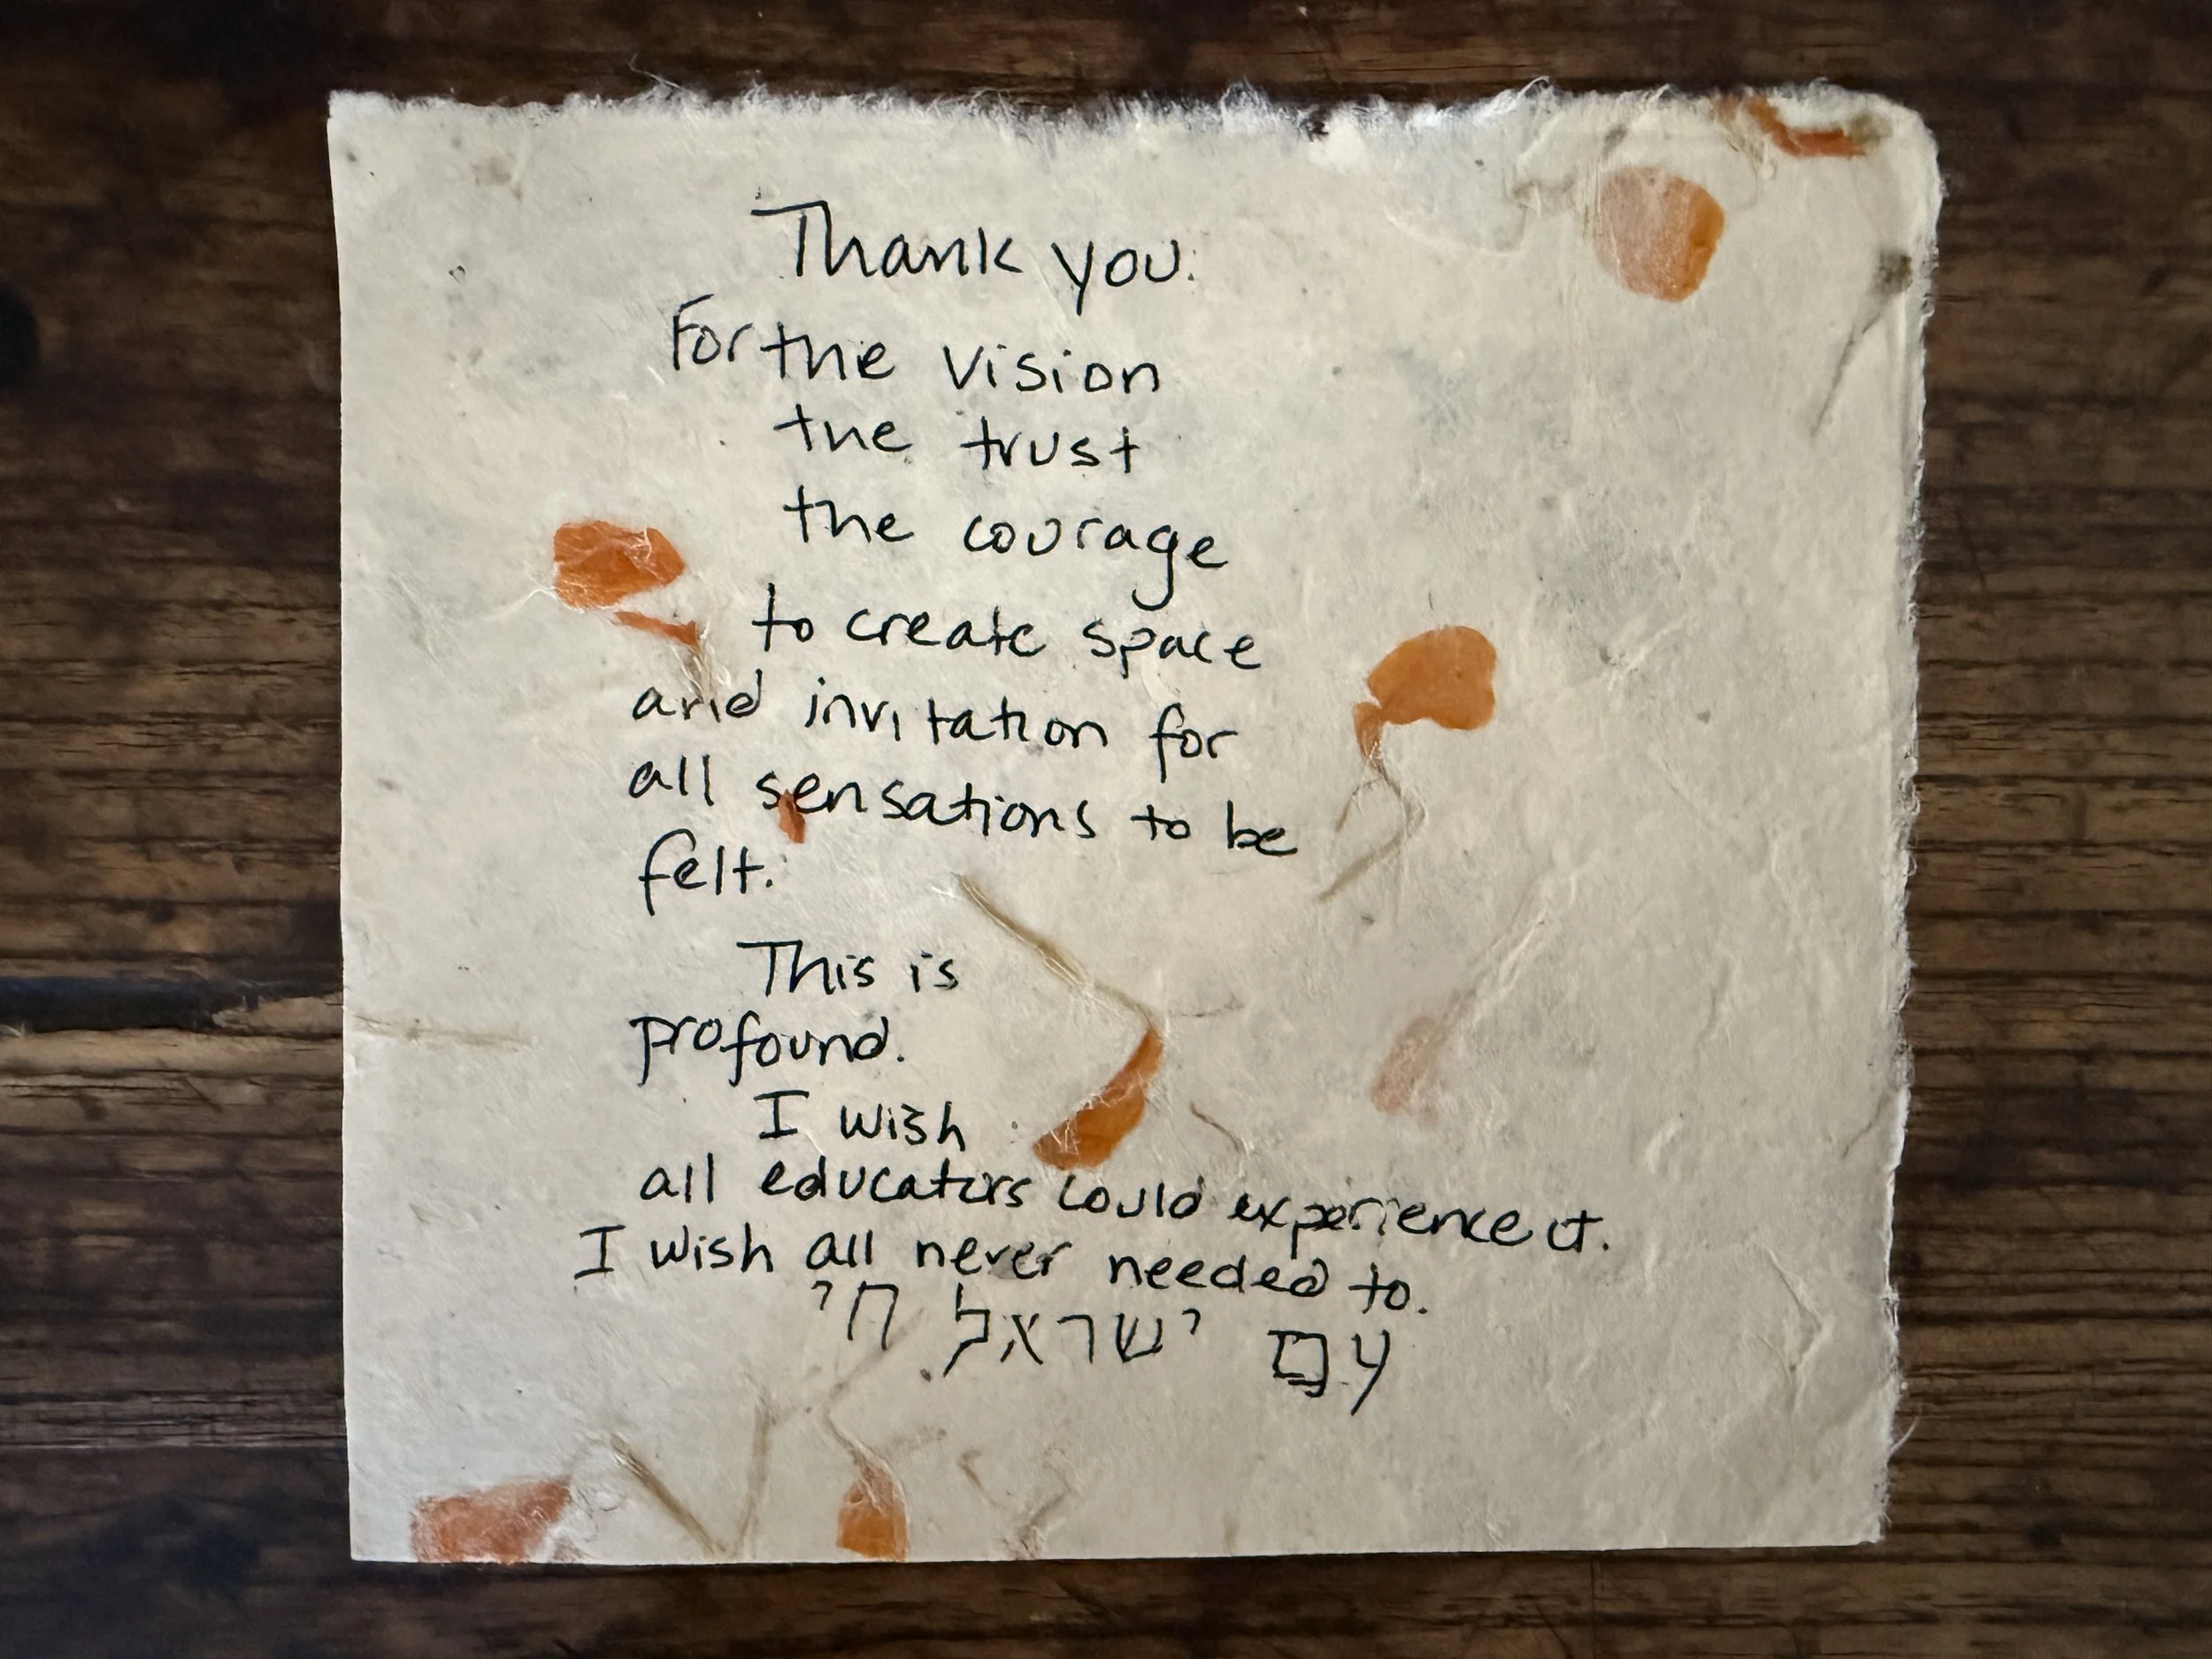 Thank you.
For the vision
the trust
the courage
to create space
and invitation for
all sensations to be
felt.
This is
profound.
I wish
all educators could experience it.
I wish all never needed to.
עם ישראל חי